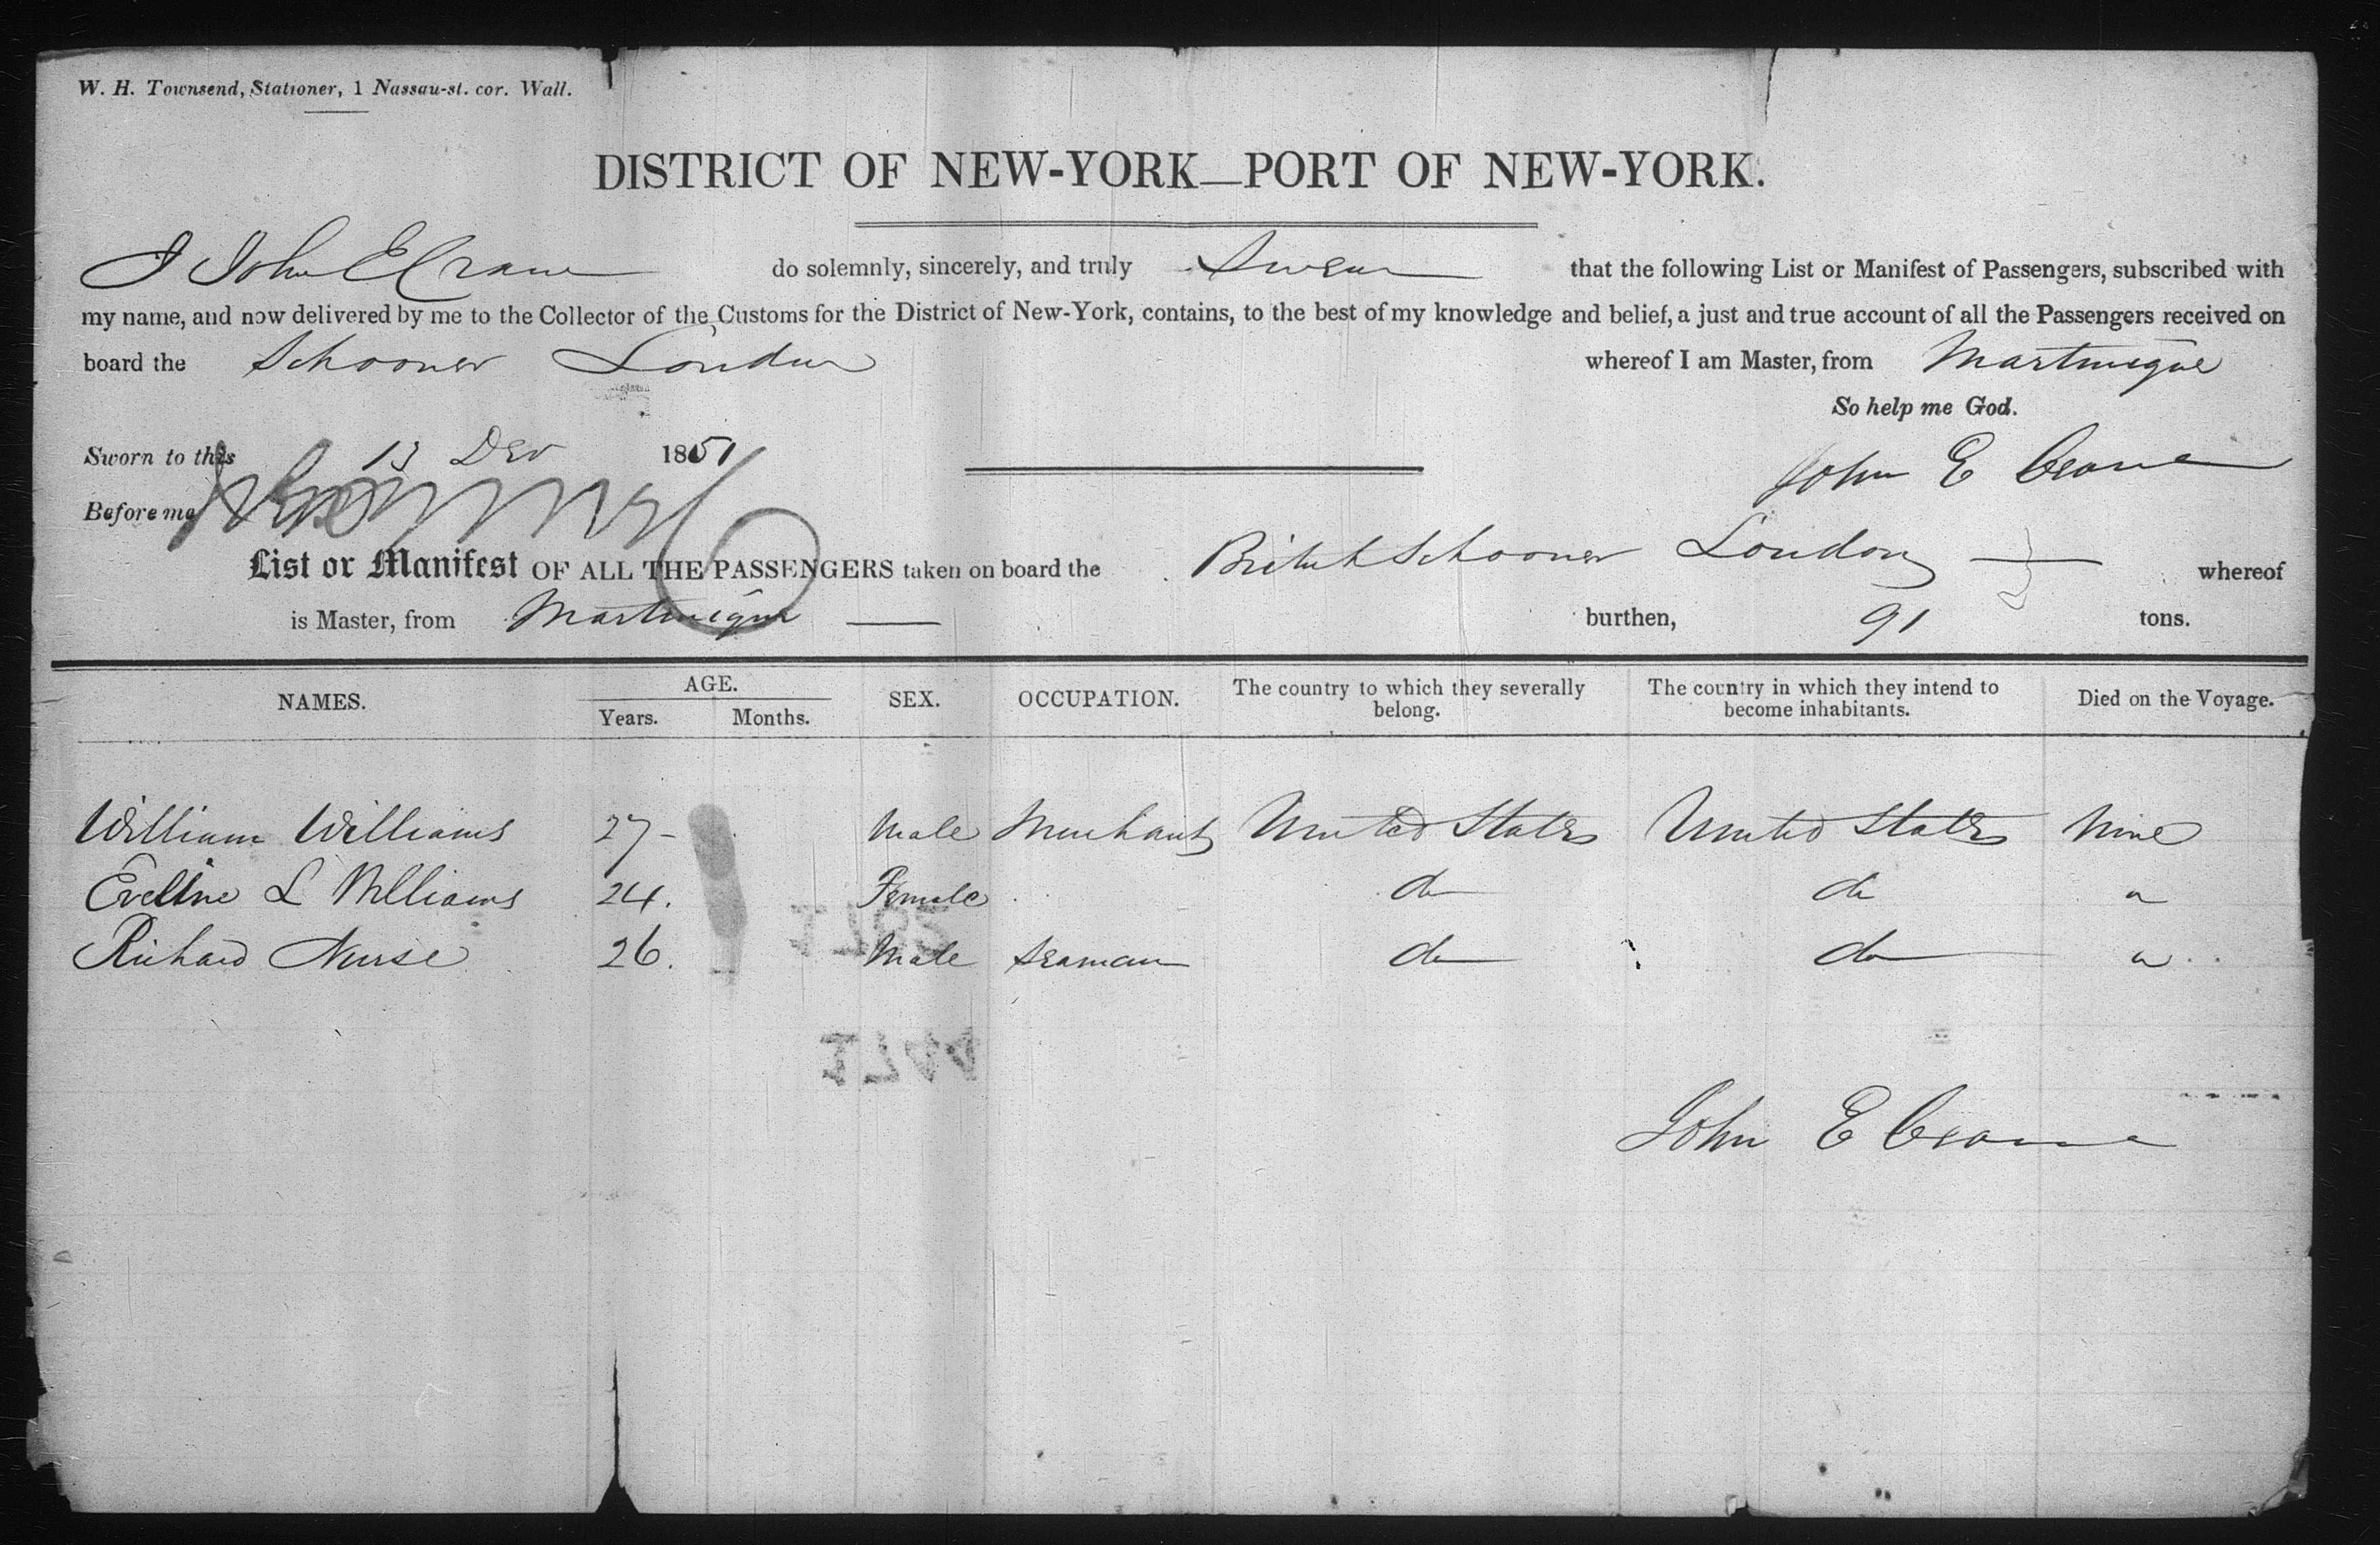 W. H. Townsend, Stationer, 1 Nassau-st. cor. Wall.
DISTRICT OF NEW-YORK—PORT OF NEW-YORK.
I John E Crane do solemnly, sincerely, and truly Swear that the following List or Manifest of Passengers, subscribed with
my name, and now delivered by me to the Collector of the Customs for the District of New-York, contains, to the best of my knowledge and belief, a just and true account of all the Passengers received on
board the Schooner London whereof I am Master, from Martinique
So help me God.
Sworn to this 13 Dec 1851
John E Crane
Before me
List or Manifest OF ALL THE PASSENGERS taken on board the British Schooner London whereof
is Master, from Martinique burthen, 91 tons.
NAMES. AGE. Years. Months. SEX. OCCUPATION. The country to which they severally belong. The country in which they intend to become inhabitants. Died on the Voyage.
William Williams 27 Male Merchant United States United States None
Eveline L Williams 24. Female do do "
Richard Nurse 26. Male Seaman do do "
1744
John E Crane